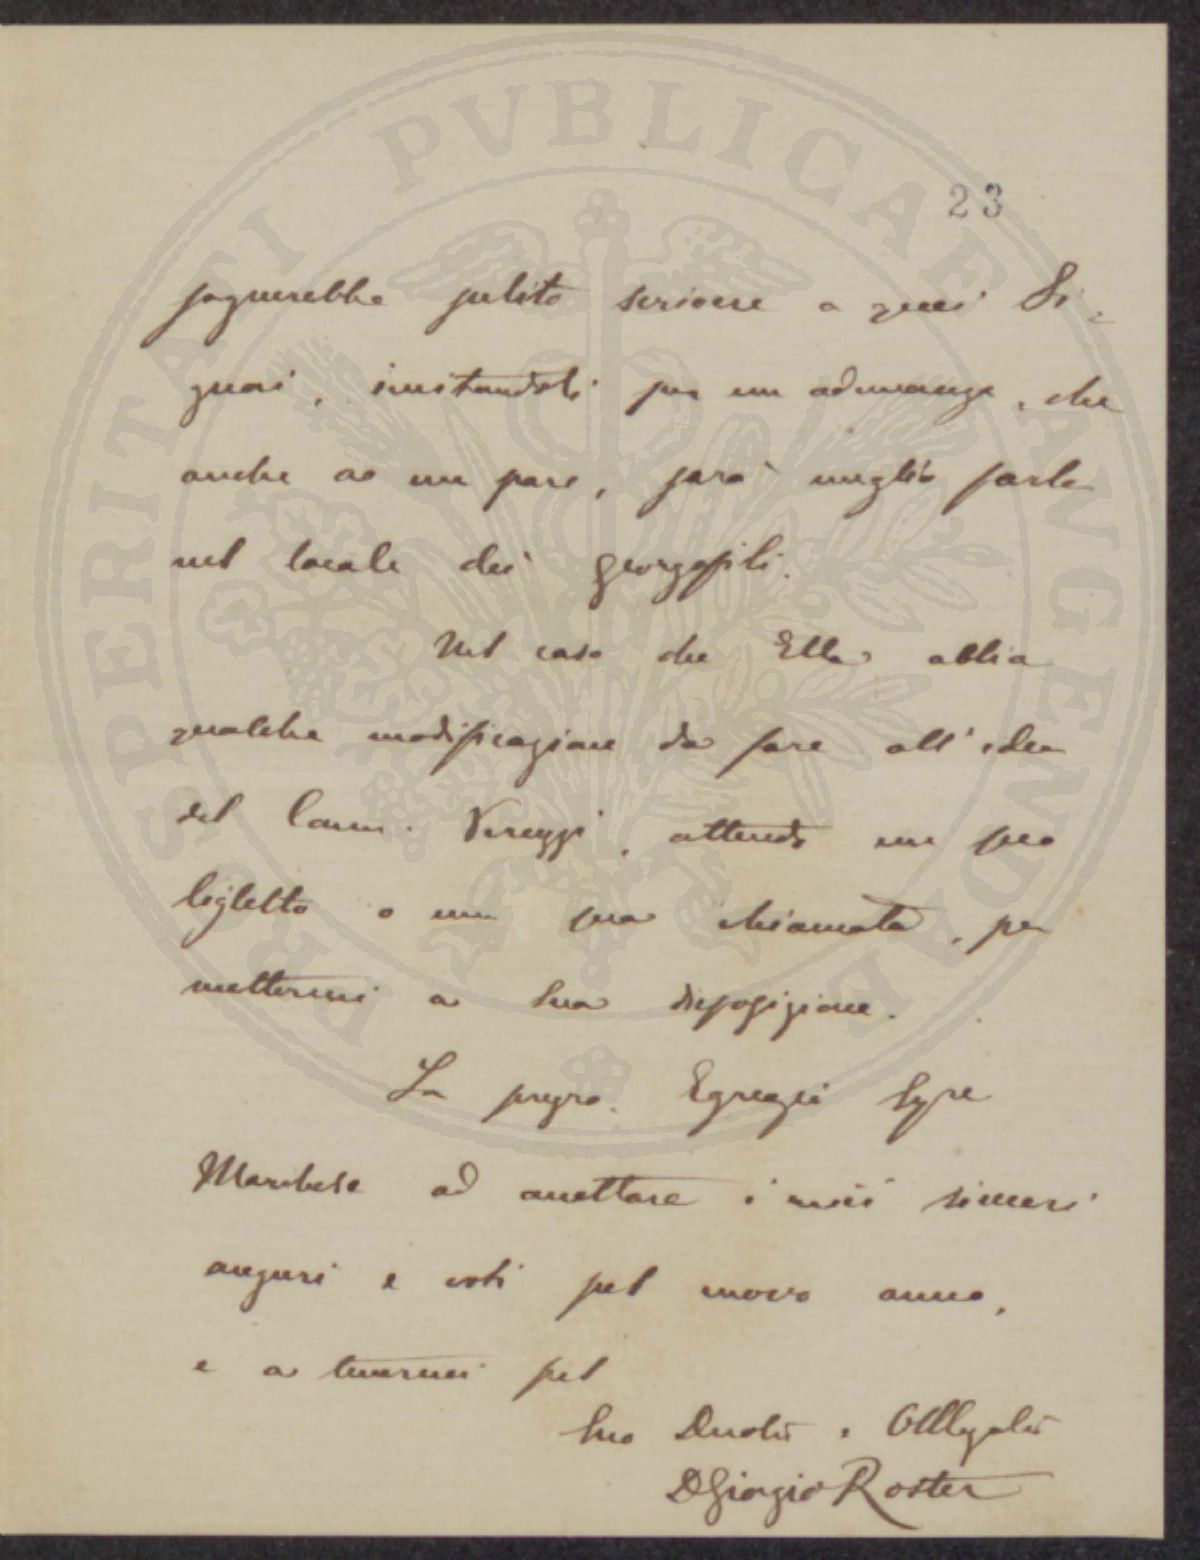 PROSPERITATI PVBLICAE AVGENDAE
23
sognerebbe subito scrivere a quei Si-
gnori, invitandoli per un adunanza, che
anche a me pare, sarà meglio farla
nel locale dei georgofili.
Nel caso che Ella abbia
qualche modificazione da fare all'idea
del Comm. attendo un suo
biglietto o una sua chiamata, per
mettermi a Sua disposizione.
La prego. Egregio Sigre
Marchese ad accettare i miei sinceri
auguri e voti pel novo anno,
e a tenermi pel
Suo Devoto e Obbligato
D Giorgio Roster